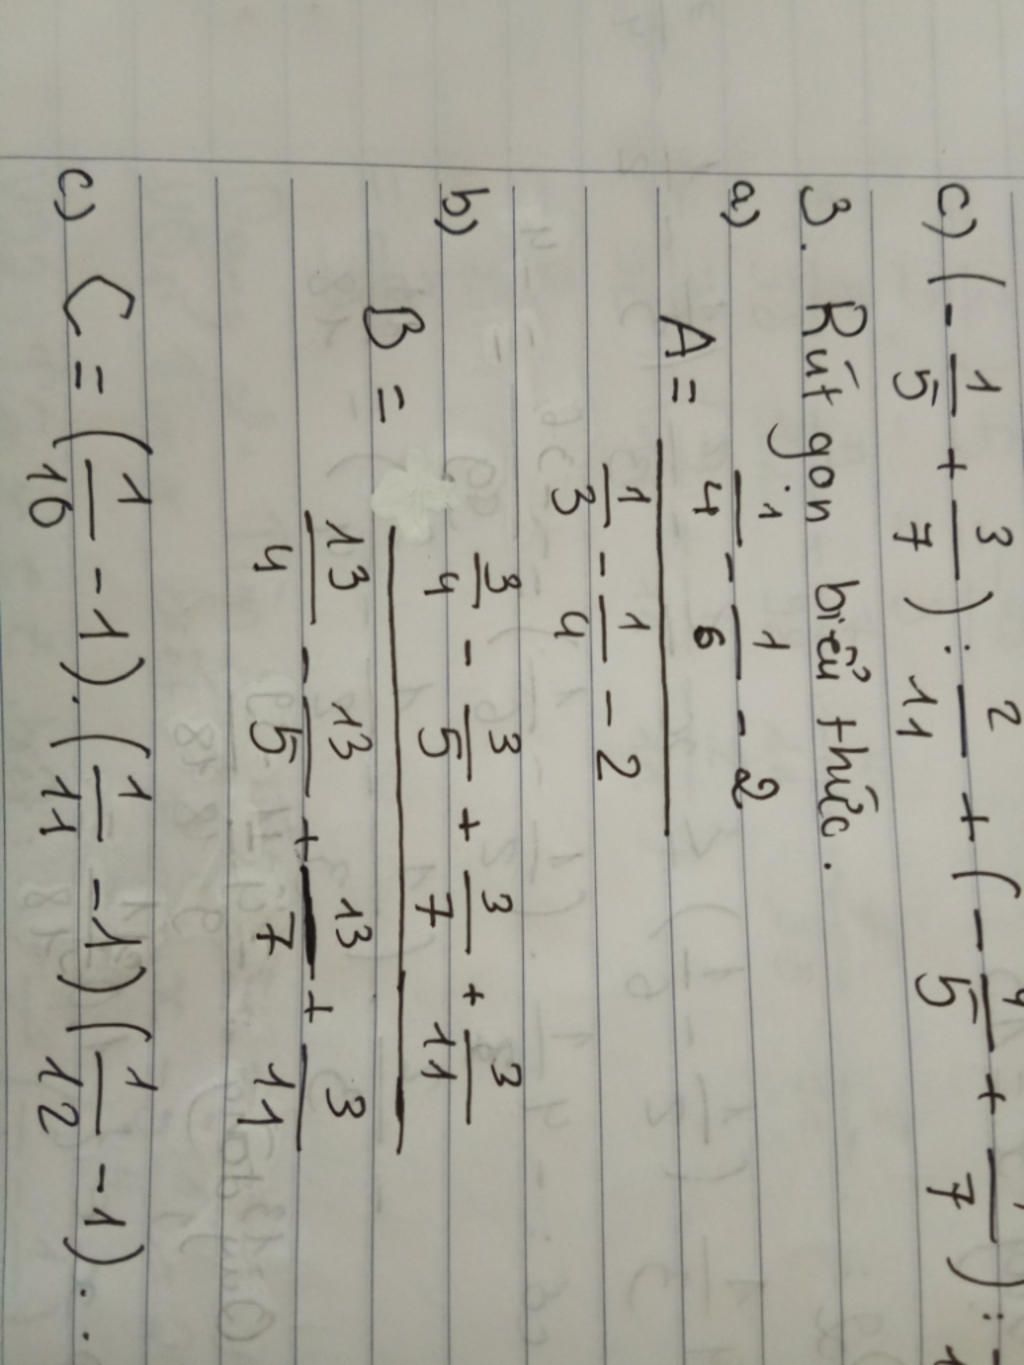 c) (-1/5 + 3/7) : 2/11 + (-4/5 + /7) :
3. Rút gọn biểu thức.
a) A = (1/4 - 1/6 - 2) / (1/3 - 1/4 - 2)
b) B = (3/4 - 3/5 + 3/7 + 3/11) / (13/4 - 13/5 + 13/7 + 3/11)
c) C = (1/10 - 1).(1/11 - 1)(1/12 - 1)...